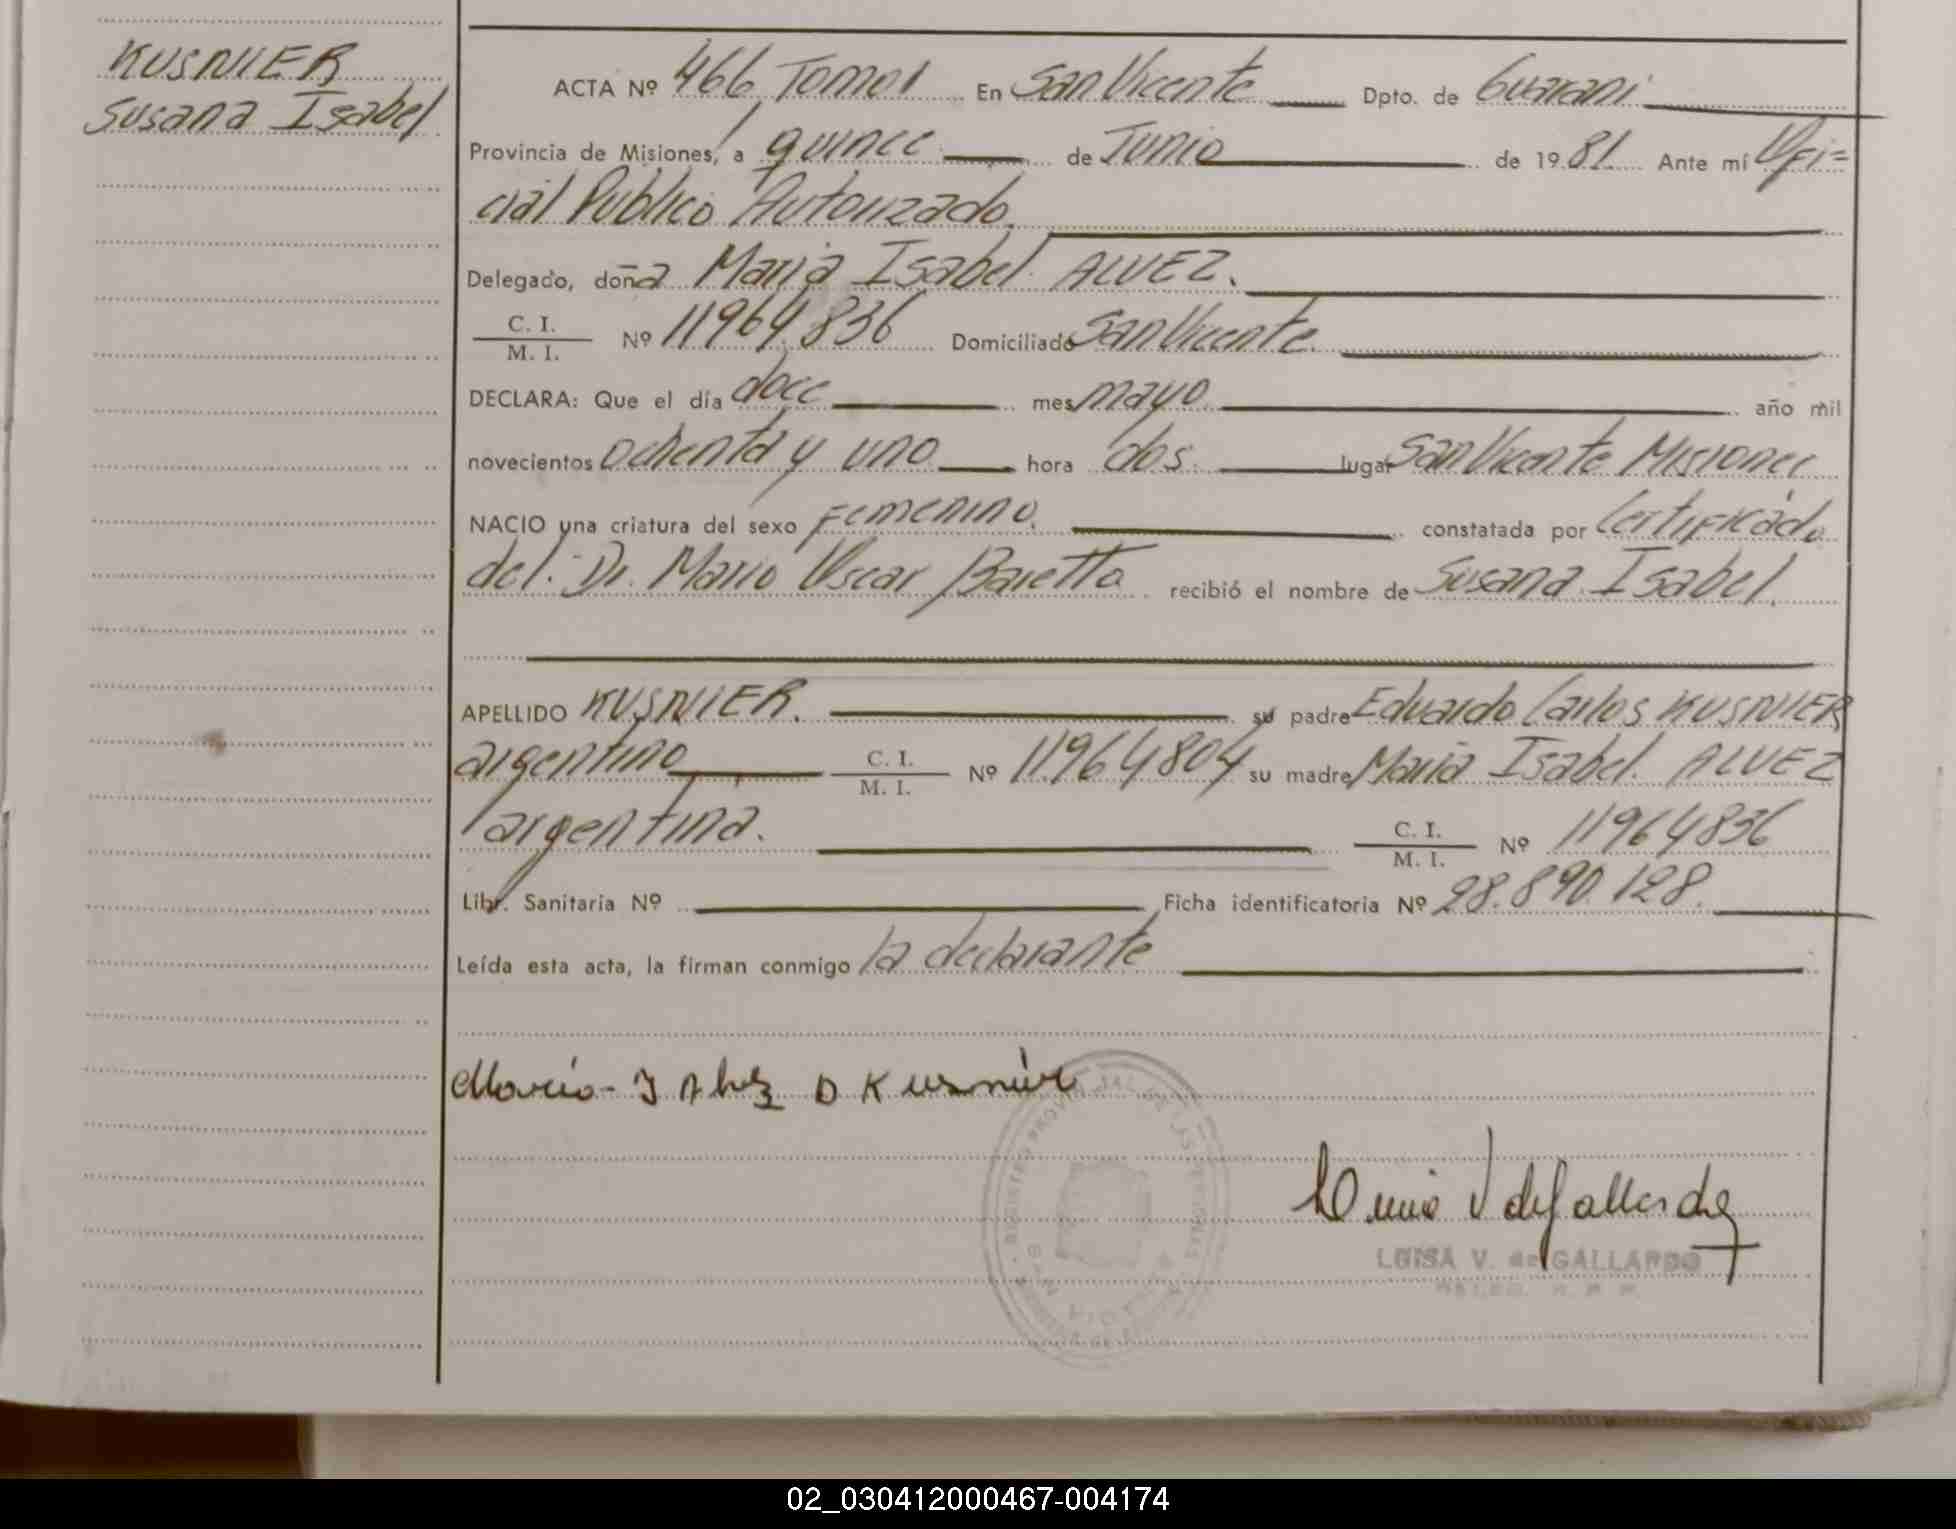 KUSNIER
Susana Isabel
ACTA Nº 466, Tomo I En San Vicente Dpto. de Guarani
Provincia de Misiones, a quince de Junio de 1981 Ante mí Ofi=
cial Público Autorizado.
Delegado, doña Maria Isabel ALVEZ.
C. I.
M. I. Nº 11964.836 Domiciliado San Vicente.
DECLARA: Que el día doce mes mayo año mil
novecientos ochenta y uno hora dos. lugar San Vicente Misiones
NACIO una criatura del sexo femenino. constatada por Certificado
del. Dr. Mario Oscar Baretto recibió el nombre de Susana Isabel.
APELLIDO KUSNIER. su padre Eduardo Carlos KUSNIER
argentino C. I.
M. I. Nº 11964804 su madre Maria Isabel. ALVEZ
argentina. C. I.
M. I. Nº 11964836
Libr. Sanitaria Nº Ficha identificatoria Nº 28.890.128.
Leída esta acta, la firman conmigo la declarante
Maria I Alvez D Kusnier
REGISTRO PROVINCIAL DE LAS PERSONAS
LUISA V. de GALLARDO
02_030412000467-004174